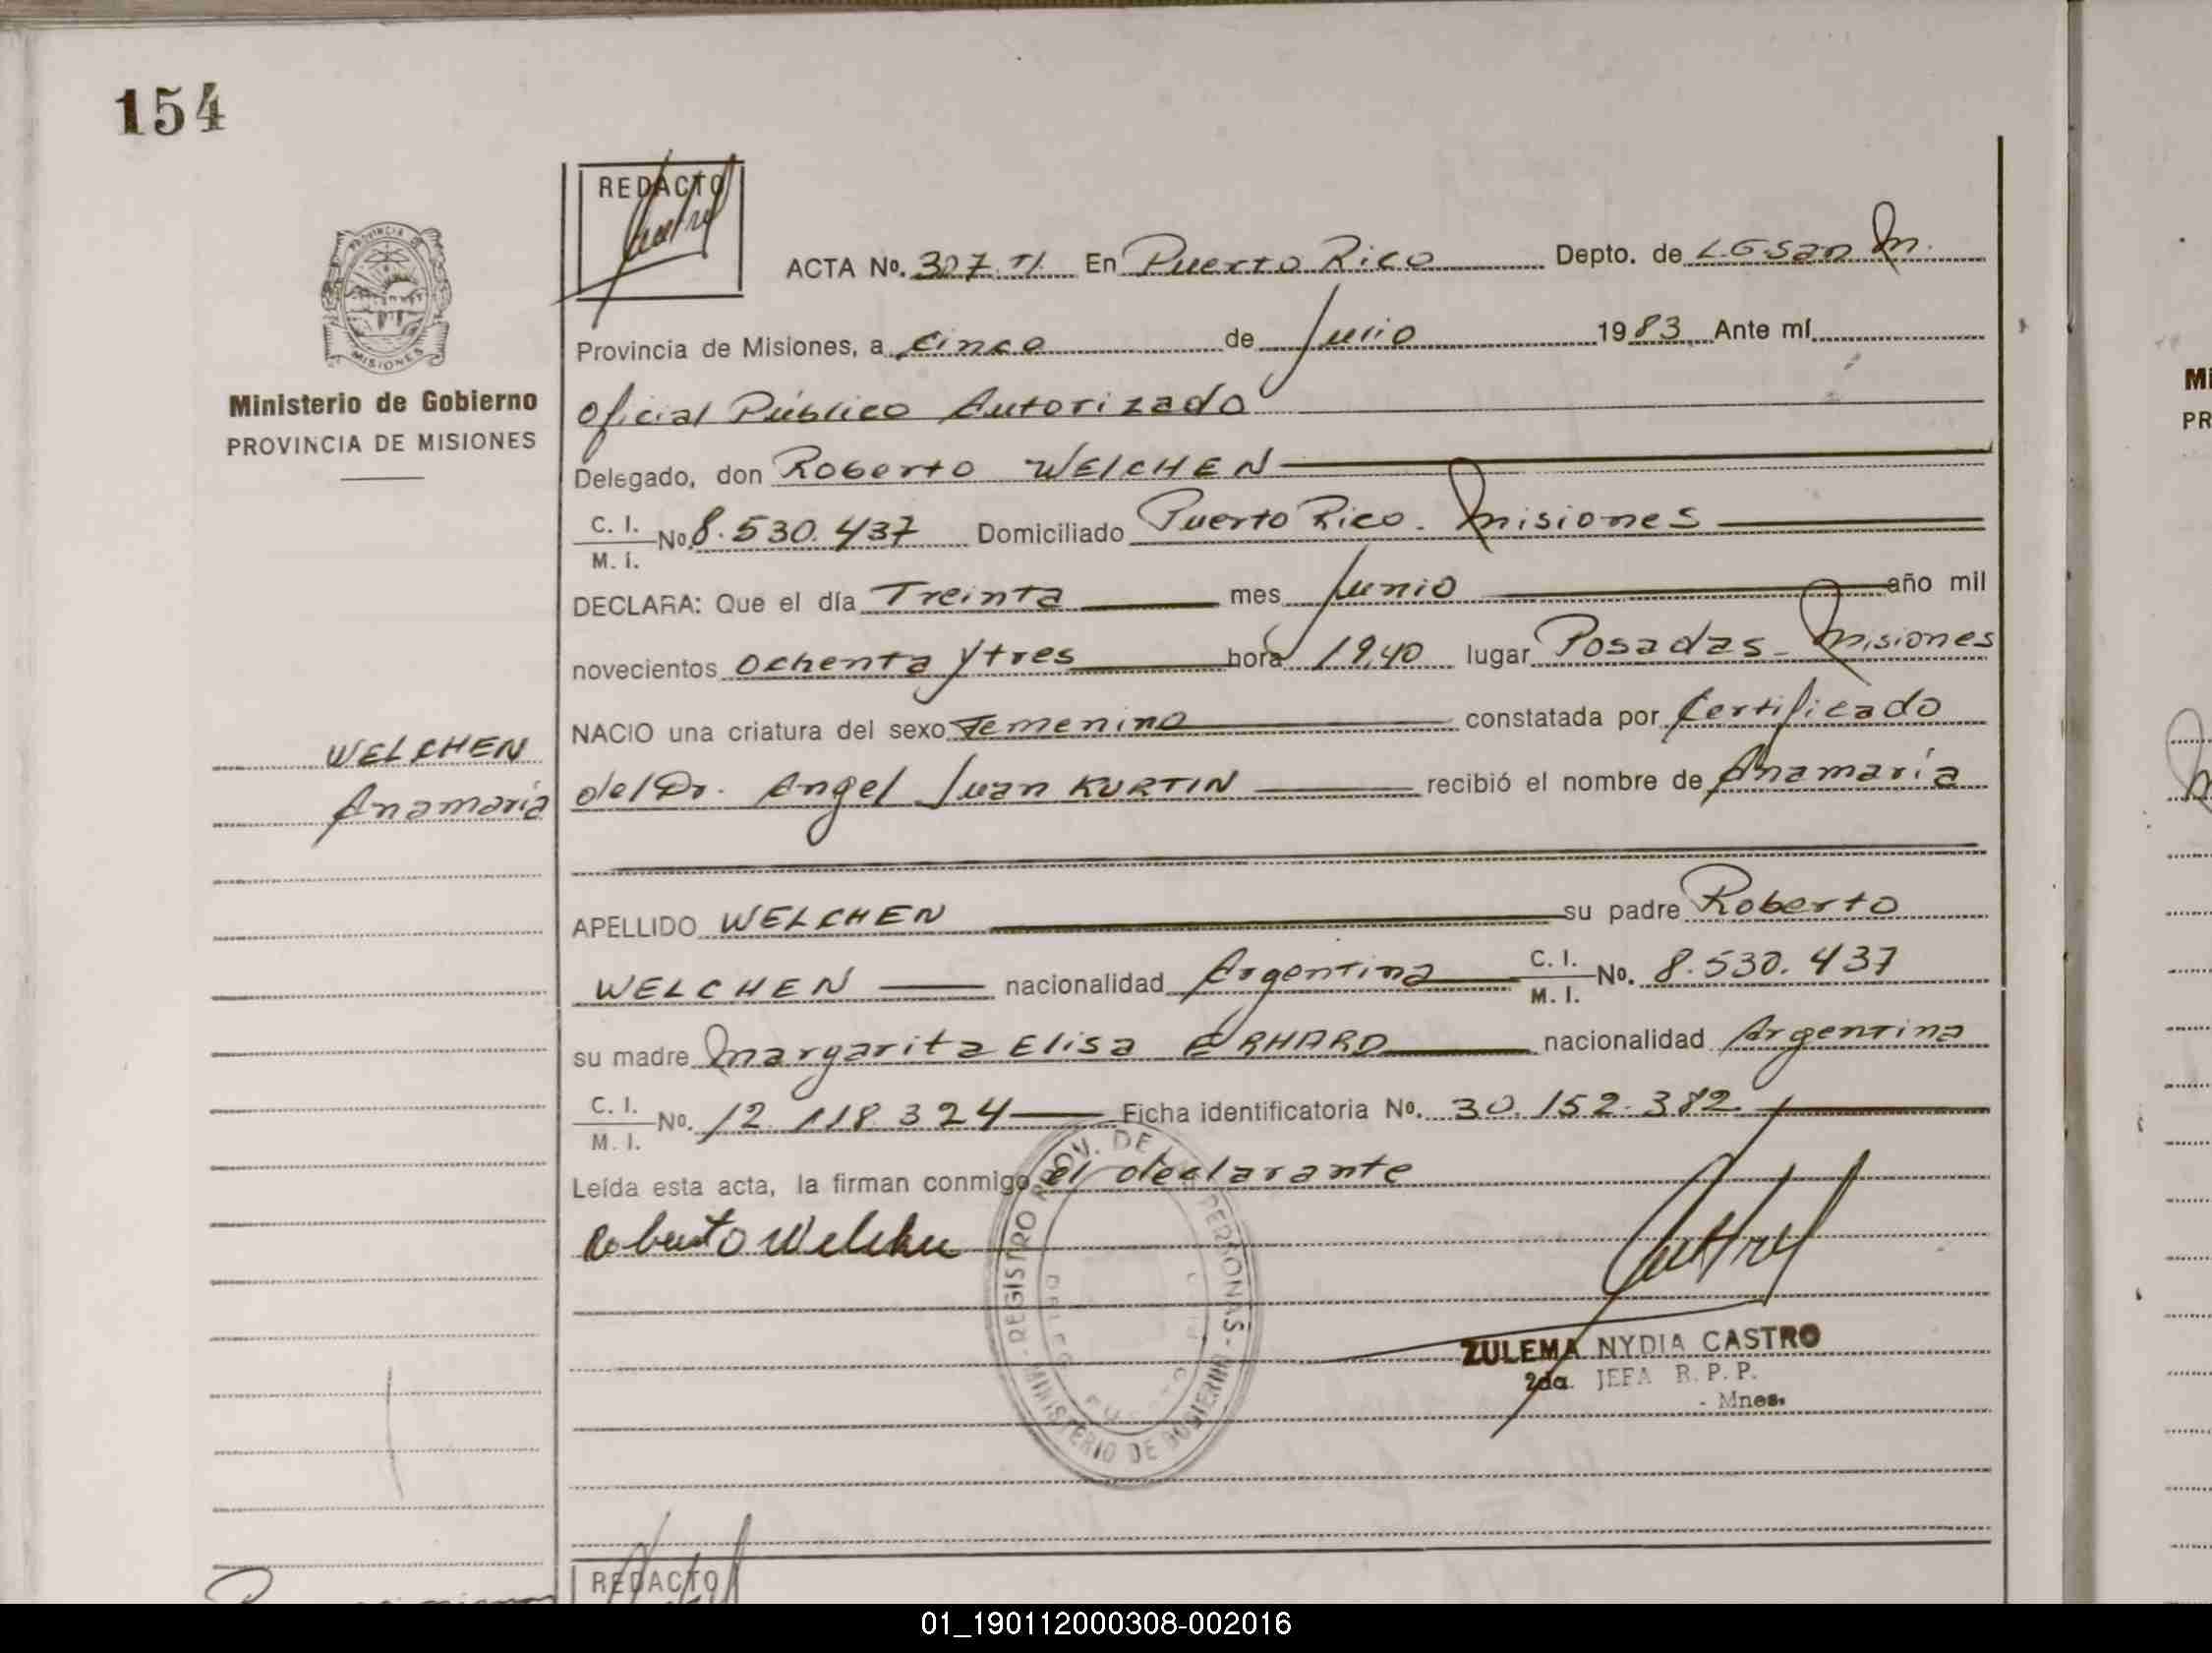 154
REDACTO
ACTA No. 307 TI. En Puerto Rico Depto. de LGSan M.
Provincia de Misiones, a cinco de Julio 1983 Ante mí
PROVINCIA DE
MISIONES
Ministerio de Gobierno
PROVINCIA DE MISIONES
Oficial Público Autorizado
Delegado, don Roberto WELCHEN
C. I.
M. I. No. 8.530.437 Domiciliado Puerto Rico. Misiones
DECLARA: Que el día Treinta mes Junio año mil
novecientos ochenta y tres hora 19,40 lugar Posadas - Misiones
NACIO una criatura del sexo Femenino constatada por Certificado
WELCHEN
Anamaría
del Dr. Angel Juan KURTIN recibió el nombre de Anamaría
APELLIDO WELCHEN su padre Roberto
WELCHEN nacionalidad Argentina C. I.
M. I. No. 8.530.437
su madre Margarita Elisa ERHARD nacionalidad Argentina
C. I.
M. I. No. 12.118.324 Ficha identificatoria No. 30.152.382
Leída esta acta, la firman conmigo el declarante
Roberto Welchen
REGISTRO PROV. DE LAS PERSONAS - MINISTERIO DE GOBIERNO
ZULEMA NYDIA CASTRO
2da. JEFA R. P. P.
- Mnes.
REDACTO
Mi
PR
01_190112000308-002016